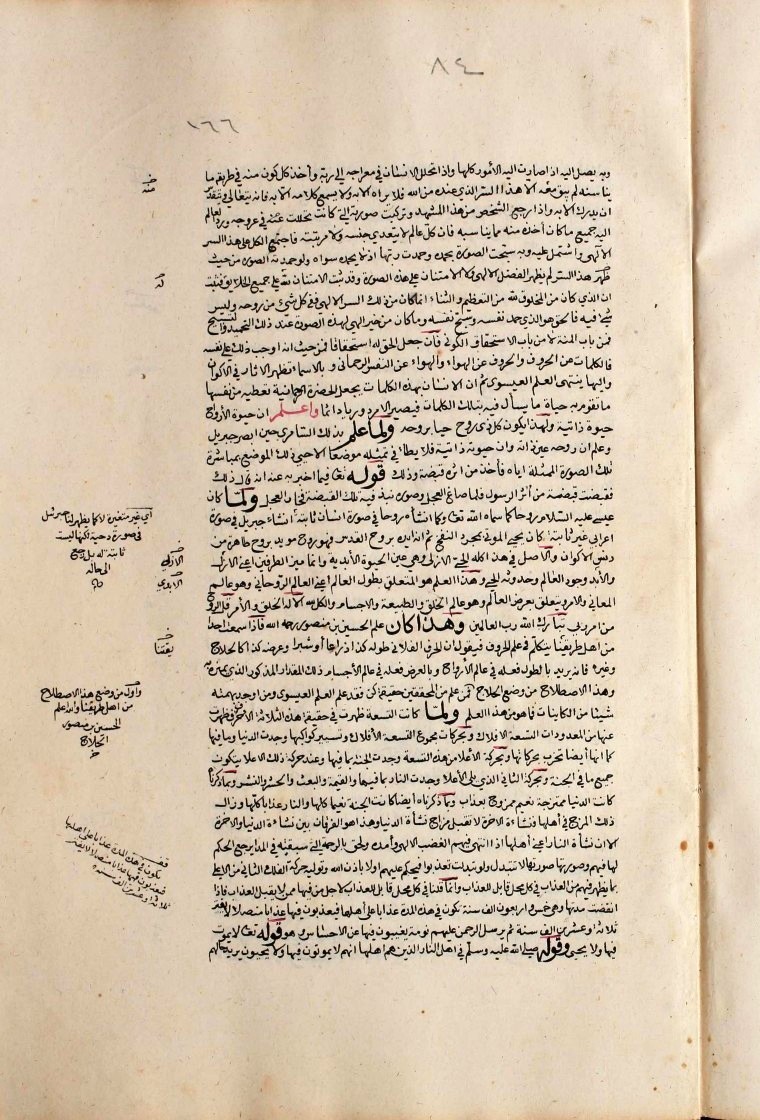 ٨٤
١٦٦
وبه يصل اليه اذا صارت اليه الأمور كلها واذا تحلل الانسان في معراجه الى ربه وأخذ كل كون منه في طريقه ما
يناسبه لم يبق معه الا هذا السر الذي عنده من الله فلا يراه الا به ولا يسمع كلامه الا به فانه يتعالى ويتقدس
ان يدرك الا به واذا رجع الشخص من هذا المشهد وتركبت صورته التي كانت تحللت عنه في عروجه ورد العالم
اليه جميع ما كان أخذه منه مما يناسبه فان كل عالم لا يتعدى جنسه فاجتمع الكل على هذا السر
الالهي واشتمل عليه وبه سبحت الصورة بحمده وحمدت ربها اذ لا يحمده سواه ولو حمدته الصورة من حيث
هذا السر لم يظهر الفضل الالهي ولا الامتنان على هذه الصورة وقد ثبت الامتنان له على جميع الخلايق فثبت
ان الذي كان من المخلوق لله من التعظيم والثناء انما كان من ذلك السر الالهي ففي كل شيء من روحه وليس
شيء فيه فالحق هو الذي حمد نفسه وسبح نفسه وما كان من خير الهي لهذه الصورة عند ذلك التحميد والتسبيح
فمن باب المنة لا من باب الاستحقاق الكوني فان جعل الحق له استحقاقا فمن حيث انه اوجب ذلك على نفسه
فالكلمات عن الحروف والحروف عن الهواء والهواء عن النفس الرحماني وبالاسماء تظهر الاثار في الاكوان
واليها ينتهى العلم العيسوي ثم ان الانسان بهذه الكلمات يجعل الحضرة الرحمانية تعطيه من نفسها
ما تقوم به حياة ما يسأل فيه بتلك الكلمات فيصير الامر دوريا دائما واعلم ان حيوة الأرواح
حيوة ذاتية ولهذا يكون كل ذي روح حيا بروحه ولما علم بذلك السامري حين ابصر جبريل
وعلم ان روحه عين ذاته وان حيوته ذاتية فلا يطأ موضعا الا حيي ذلك الموضع بمباشرة
تلك الصورة الممثلة اياه فأخذ من اثره قبضة وذلك قوله تعالى فيما اخبر به عنه انه قال ذلك
فقبضت قبضة من أثر الرسول فلما صاغ العجل وصوره نبذ فيه تلك القبضة فخار العجل ولما كان
عيسى عليه السلام روحا كما سماه الله تعالى وكما انشأه روحا في صورة انسان ثابتة انشاء جبريل في صورة
اعرابي غير ثابتة كان يحيي الموتى بمجرد النفخ ثم انه ايده بروح القدس فهو روح مؤيد بروح طاهرة من
دنس الاكوان والاصل في هذا كله الحي الازلي وهي عين الحيوة الأبدية وانما ميز الطرفين اعني الازل
والأبد وجود العالم وحدوثه الحي وهذا العلم هو المتعلق بطول العالم اعني العالم الروحاني وهو عالم
المعاني والامر ويتعلق بعرض العالم وهو عالم الخلق والطبيعة والاجسام والكل لله الا له الخلق والأمر قل الروح
من امر ربي تبارك الله رب العالمين وهذا كان علم الحسين بن منصور رحمه الله فاذا سمعت احدا
من اهل طريقنا يتكلم في علم الحروف فيقول ان الحرف الفلاني طوله كذا ذراعا أو شبرا وعرضه كذا كالحلاج
وغيره فانه يريد بالطول فعله في عالم الأرواح وبالعرض فعله في عالم الأجسام ذلك المقدار المذكور الذي يميزه به
وهذا الاصطلاح من وضع الحلاج فمن علم من المحققين حقيقة كن فقد علم العلم العيسوي ومن اوجد بهمته
شيئا من الكاينات فما هو من هذا العلم ولما كانت التسعة ظهرت في حقيقة هذه الثلاثة الاحرف ظهرت
عنها من المعدودات التسعة الافلاك وبحركات مجموع التسعة الأفلاك وتسيير كواكبها وجدت الدنيا وما فيها
كما انها ايضا تخرب بحركاتها وبحركة الأعلا من هذه التسعة وجدت الجنة بما فيها وعند حركة ذلك الاعلا يتكون
جميع ما في الجنة وبحركة الثاني الذي يلي الأعلا وجدت النار بما فيها والقيمة والبعث والحشر والنشر وبما ذكرناه
كانت الدنيا ممتزجة نعيم ممزوج بعذاب وبما ذكرناه ايضا كانت الجنة نعيما كلها والنار عذابا كلها وزال
ذلك المزج في أهلها فنشاءة الاخرة لا تقبل مزاج نشأة الدنيا وهذا هو الفرقان بين نشاءة الدنيا والاخرة
الا ان نشأة النار اعني أهلها اذا انتهى فيهم الغضب الالهي وأمده ولحق بالرحمة التي سبقته في المدا يرجع الحكم
لها فيهم وصورتها صورتها لا تتبدل ولو تبدلت تعذبوا فيحكم عليهم اولا باذن الله وتوليه حركة الفلك الثاني من الاعلا
بما يظهر فيهم من العذاب في كل محل قابل للعذاب وانما قلنا في كل محل قابل للعذاب لاجل من فيها ممن لا يقبل العذاب فاذا
انقضت مدتها وهي خمس واربعون الف سنة تكون في هذه المدة عذابا على أهلها فيعذبون فيها عذابا متصلا لا يفتر
ثلاثة وعشرين الف سنة ثم يرسل الرحمن عليهم نومة يغيبون فيها عن الاحساس وهو قوله تعالى لا يموت
فيها ولا يحيى وقوله صلى الله عليه وسلم في اهل النار الذين هم اهلها انهم لا يموتون فيها ولا يحيون يريد حالهم
منه
له
أي غير متغيرة لا كما يظهر لنا جبريل
في صورة دحية لكنها ليست
ثابتة له بل
الازلي
الابدي
يقتنا
واول من وضع هذا الاصطلاح
من اهل طريقنا وابدا علم
الحسين بن منصور
الحلاج
تكون في هذه المدة عذابا على اهلها
فيعذبون فيها عذابا متصلا لا يفتر
ثلاثة وعشرين الف سنة